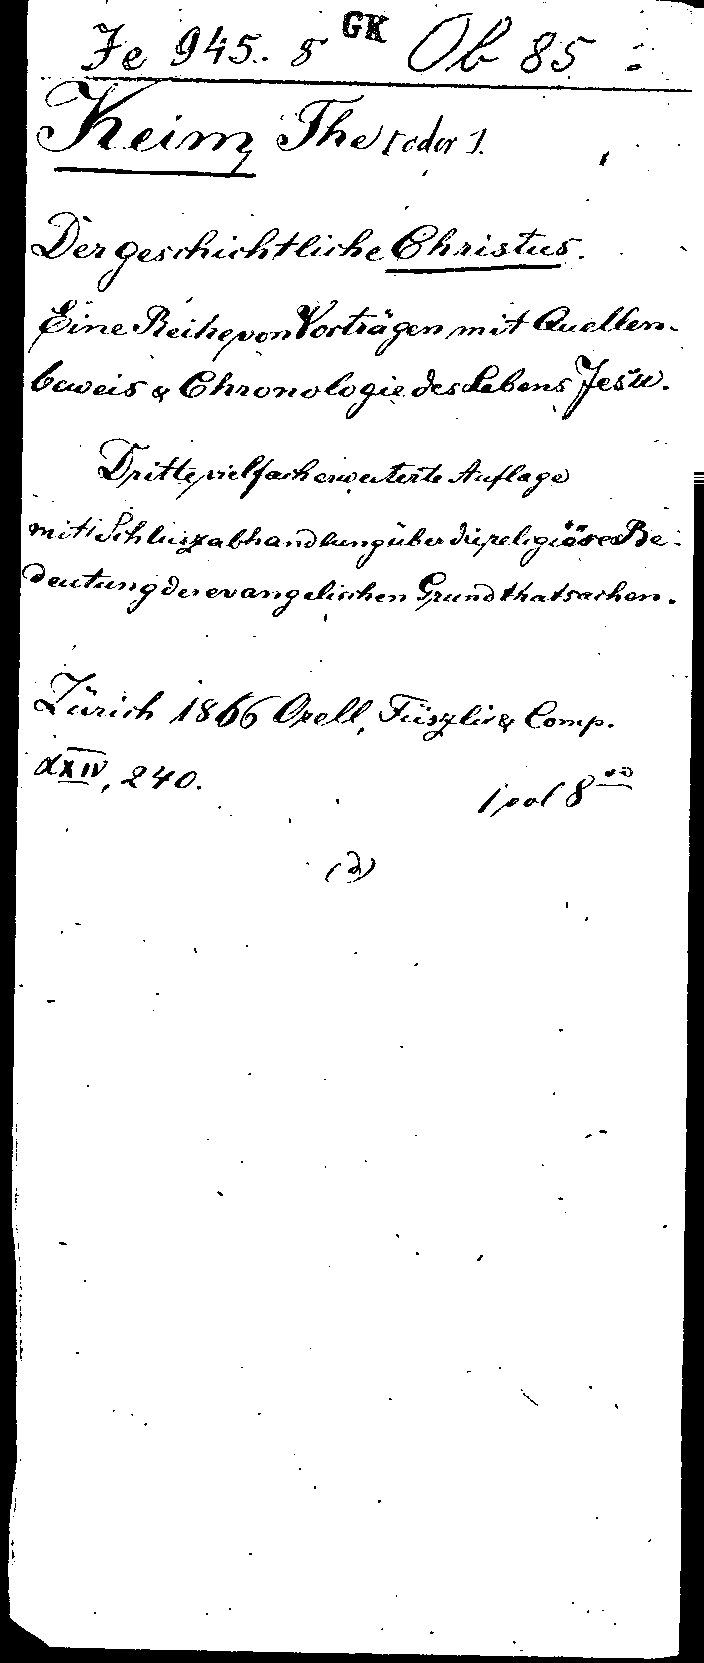 Fe 945. 8 GK Ob 85 :
Keim, The[odor].
Der geschichtliche Christus.
Eine Reihe von Vorträgen mit Quellen-
beweis & Chronologie des Lebens Jesu.
Dritte, vielfach erweiterte Auflage
mit Schluszabhandlung über die religiöse Be-
deutung der evangelischen Grundthatsachen.
Zürich 1866 Orell, Füszli & Comp.
XIV, 240.
1 vol 8
(2)